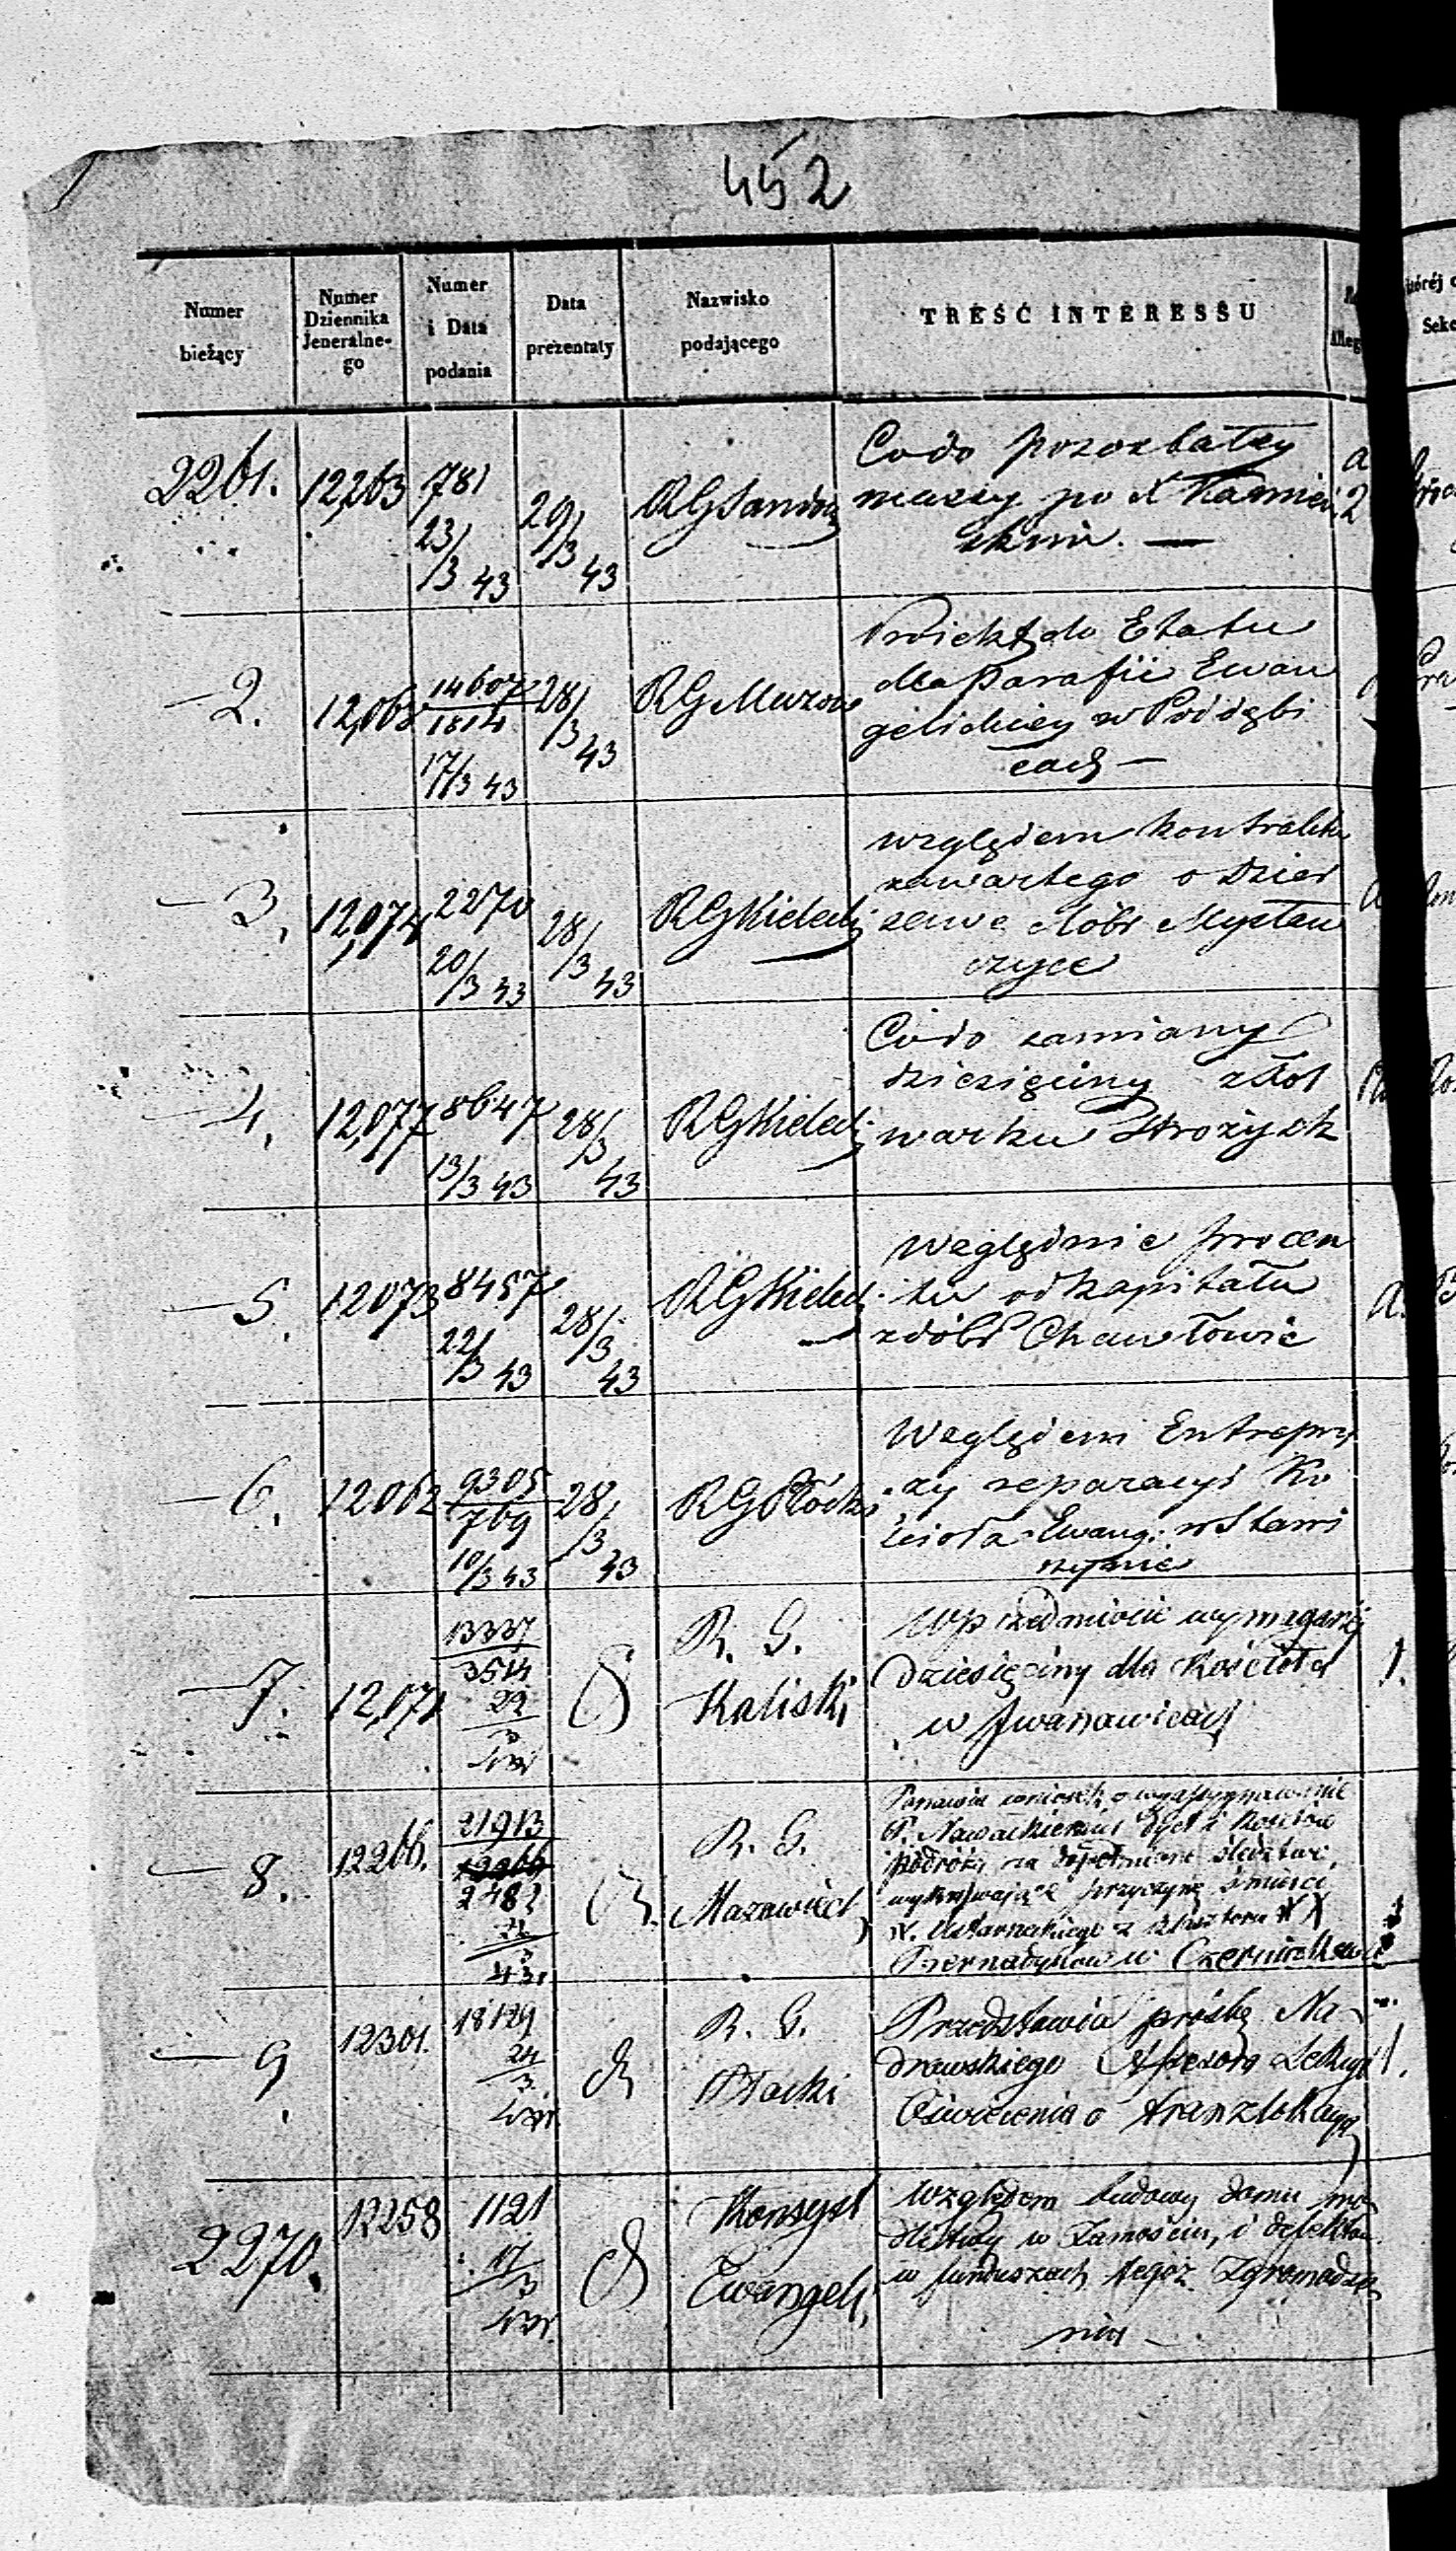 452
Numer bieżący
Numer Dziennika Jeneralne-go
Numer i Data podania
Data prezentaty
Nazwisko podającego
TREŚĆ INTERESSU
2261. 12,263 781 23/3 43 29/3 43 RG Sandom
Co do pozozbałey
massy po X
skim. —
— 2. 12,063 14607 1814 17/3 43 28/3 43 RG Mazow
Proiekt do Etatu
dla Parafii Ewan
gelickiey w
cach —
— 3. 12,074 2270 20/3 43 28/3 43 RG Kielecki
względem kontraktu
zawartego o Dzier
zawę Dóbr Mysław
czyce
— 4. 12,077 8647 13/3 43 28/3 43 RG Kielecki
Co do zamiany
dziesięciny z fol
warku Strożysk
— 5. 12073 8457 22/3 43 28/3 43 RG Kielecki
Względnie procen
tu od kapitału
z dóbr Chawłowic
— 6. 12062 9305 769 10/3 43 28/3 43 RG Płocki
Względem Entrepry
zy reparacyi Ko
ścioła Ewang: w Stawi
szynie
— 7. 12,071 13337 3514 22/3 43 R. G. Kaliski
W przedmiocie wymaganéj
Dziesięciny dla Kościoła
w Iwanowicach
— 8. 12266. 21913 2482 43. R. G. Mazowieck
Ponawia wniosek o wyassygnowanie
P. dyet i kosztów
podróży na dopełnione śledztwo,
wykrywające przyczynę śmierci
X. z klasztoru XX
Bernardynów w
— 9. 12301. 18129 24/3 R. G. Płocki
Przedstawia prośbę Na
drowskiego Assessora Sekcyi
Oświecenia o tranzlokacyą
2270. 12258 1121 17/3 Konsyst Ewangeli,
Względem budowy domu mo
dlitwy w Zamościu, i defektów
w funduszach tegoż Zgromadze
nia —